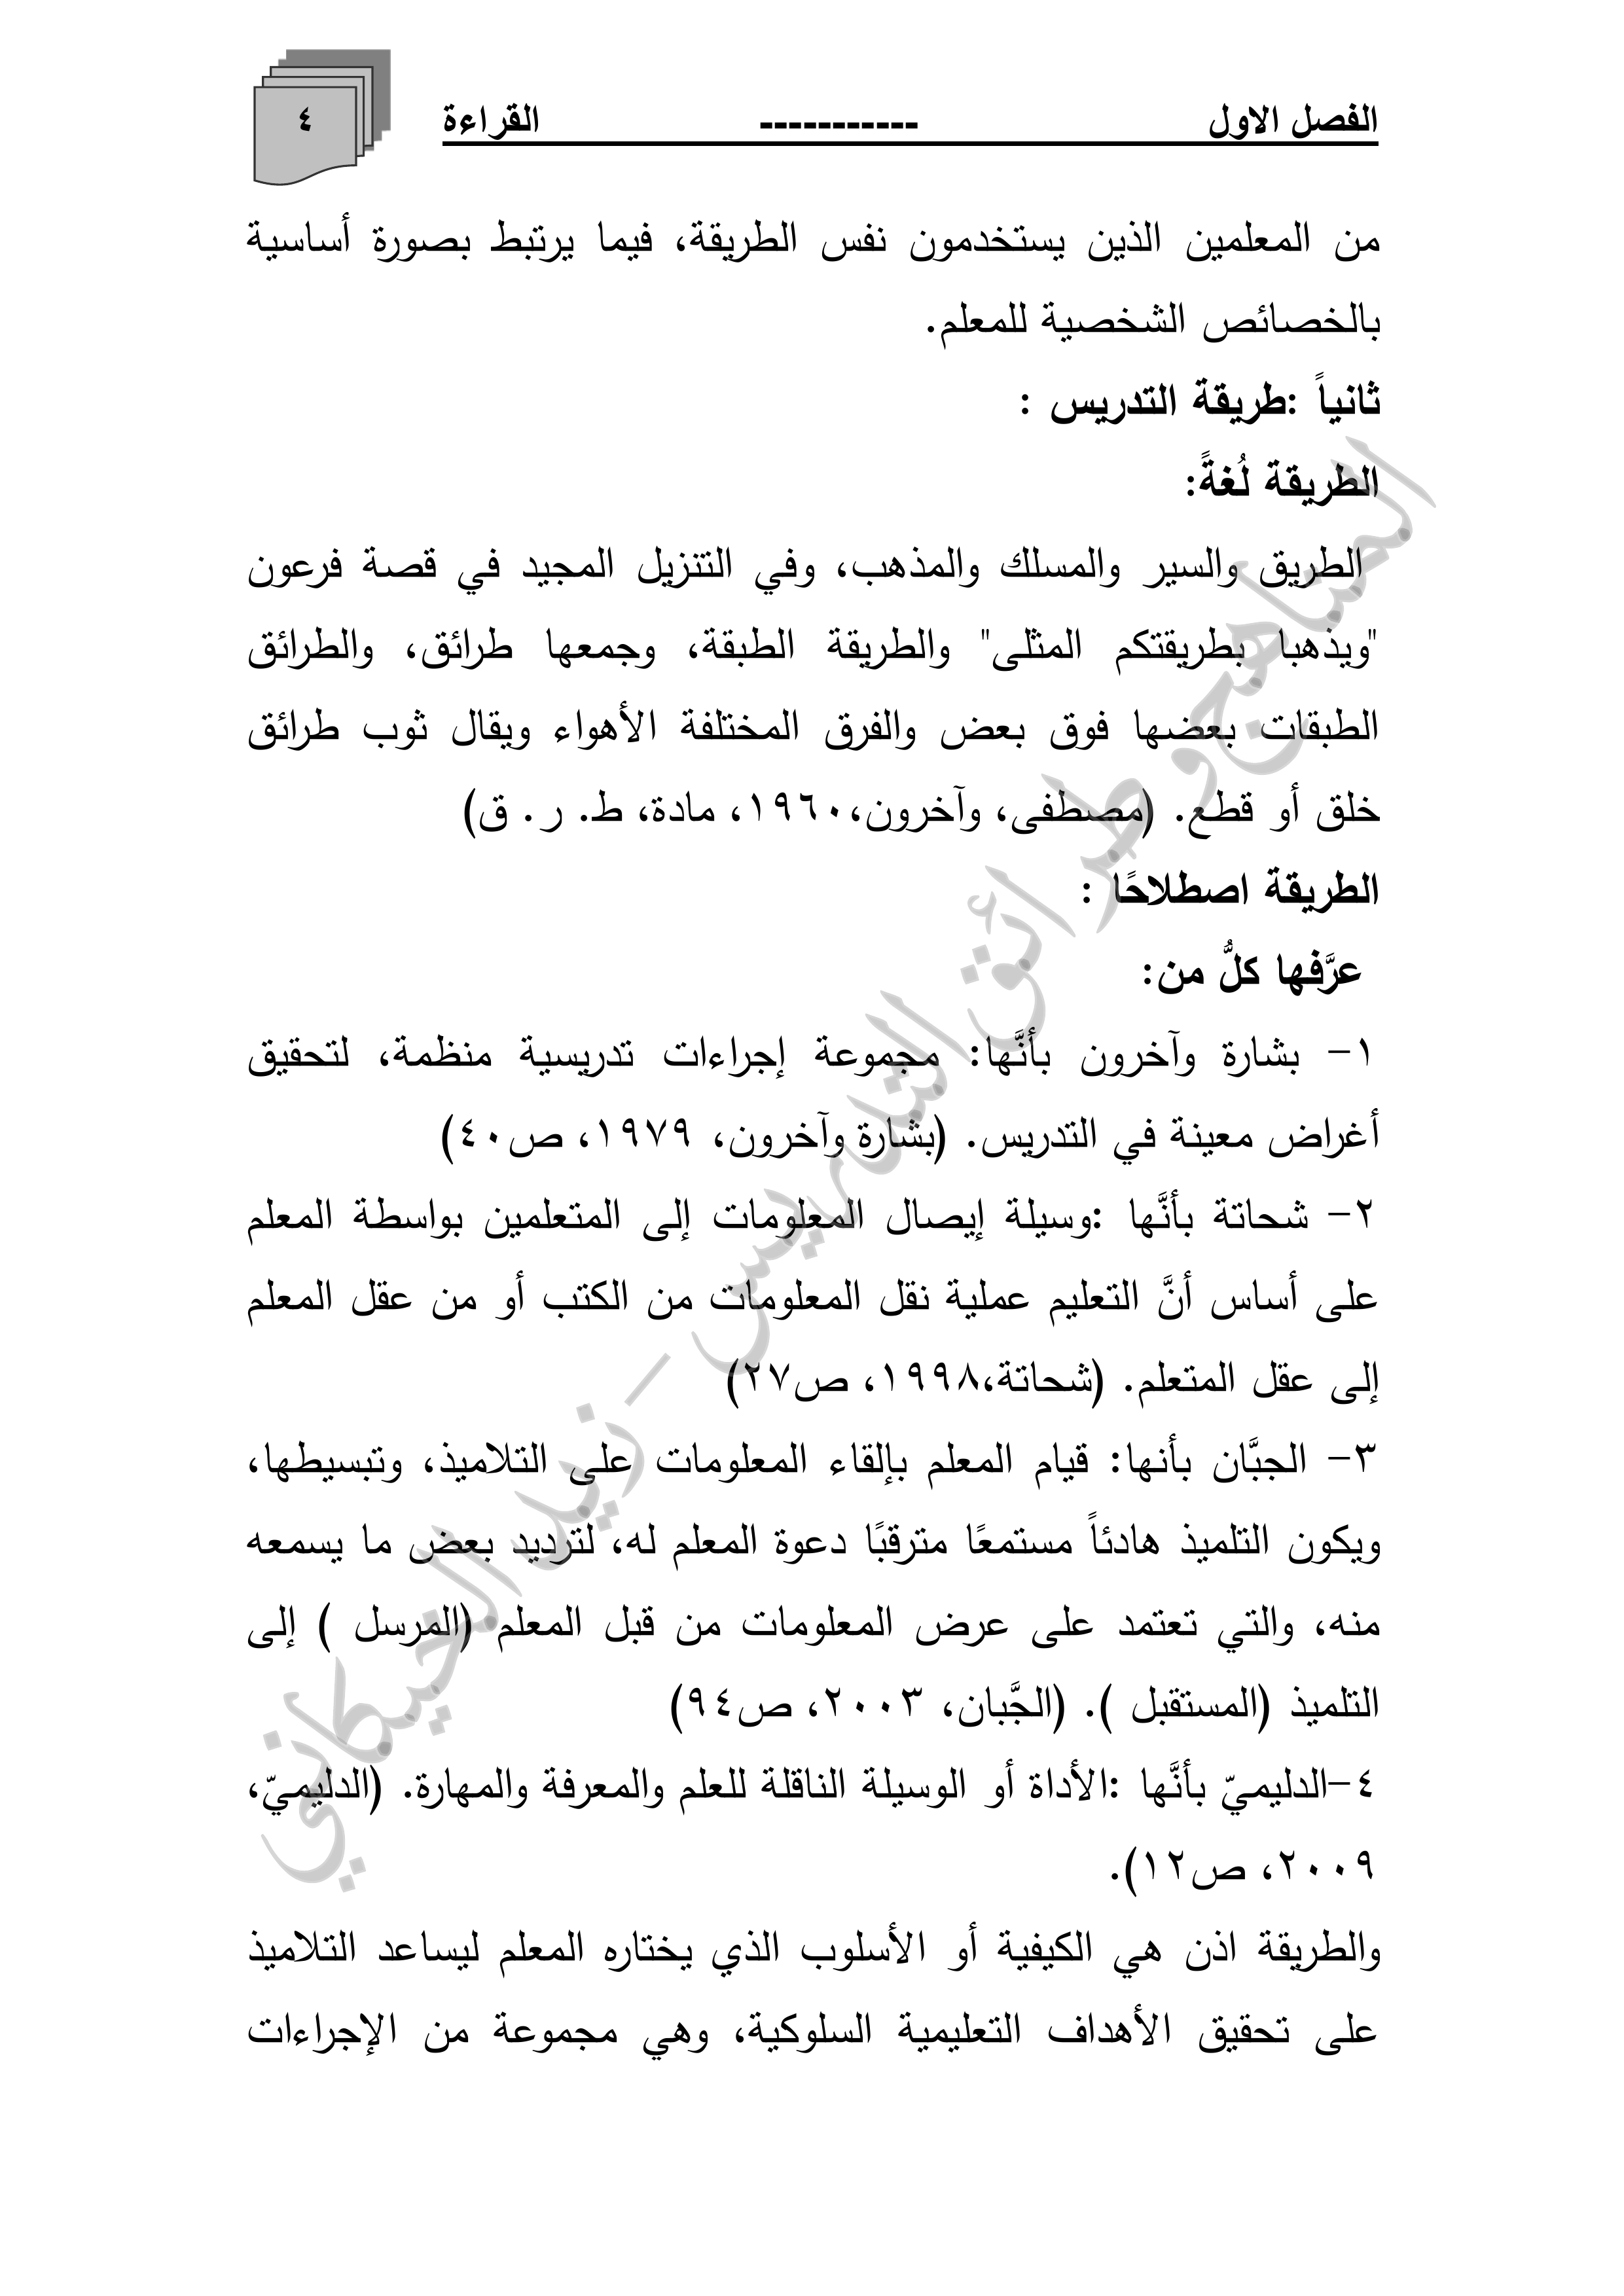 الفصل الاول ----------- القراءة
٤
من المعلمين الذين يستخدمون نفس الطريقة، فيما يرتبط بصورة أساسية
بالخصائص الشخصية للمعلم.
ثانياً :طريقة التدريس :
الطريقة لُغةً:
الطريق والسير والمسلك والمذهب، وفي التنزيل المجيد في قصة فرعون
"ويذهبا بطريقتكم المثلى" والطريقة الطبقة، وجمعها طرائق، والطرائق
الطبقات بعضها فوق بعض والفرق المختلفة الأهواء ويقال ثوب طرائق
خلق أو قطع. (مصطفى، وآخرون،١٩٦٠، مادة، ط. ر. ق)
الطريقة اصطلاحًا :
عرَّفها كلُّ من:
١- بشارة وآخرون بأنَّها: مجموعة إجراءات تدريسية منظمة، لتحقيق
أغراض معينة في التدريس. (بشارة وآخرون، ١٩٧٩، ص٤٠)
٢- شحاتة بأنَّها :وسيلة إيصال المعلومات إلى المتعلمين بواسطة المعلم
على أساس أنَّ التعليم عملية نقل المعلومات من الكتب أو من عقل المعلم
إلى عقل المتعلم. (شحاتة،١٩٩٨، ص٢٧)
٣- الجبَّان بأنها: قيام المعلم بإلقاء المعلومات على التلاميذ، وتبسيطها،
ويكون التلميذ هادئاً مستمعًا مترقبًا دعوة المعلم له، لترديد بعض ما يسمعه
منه، والتي تعتمد على عرض المعلومات من قبل المعلم (المرسل ) إلى
التلميذ (المستقبل ). (الجَّبان، ٢٠٠٣، ص٩٤)
٤-الدليميّ بأنَّها :الأداة أو الوسيلة الناقلة للعلم والمعرفة والمهارة. (الدليميّ،
٢٠٠٩، ص١٢).
والطريقة اذن هي الكيفية أو الأسلوب الذي يختاره المعلم ليساعد التلاميذ
على تحقيق الأهداف التعليمية السلوكية، وهي مجموعة من الإجراءات
المناهج وطرائق التدريس - زيد الخيكاني